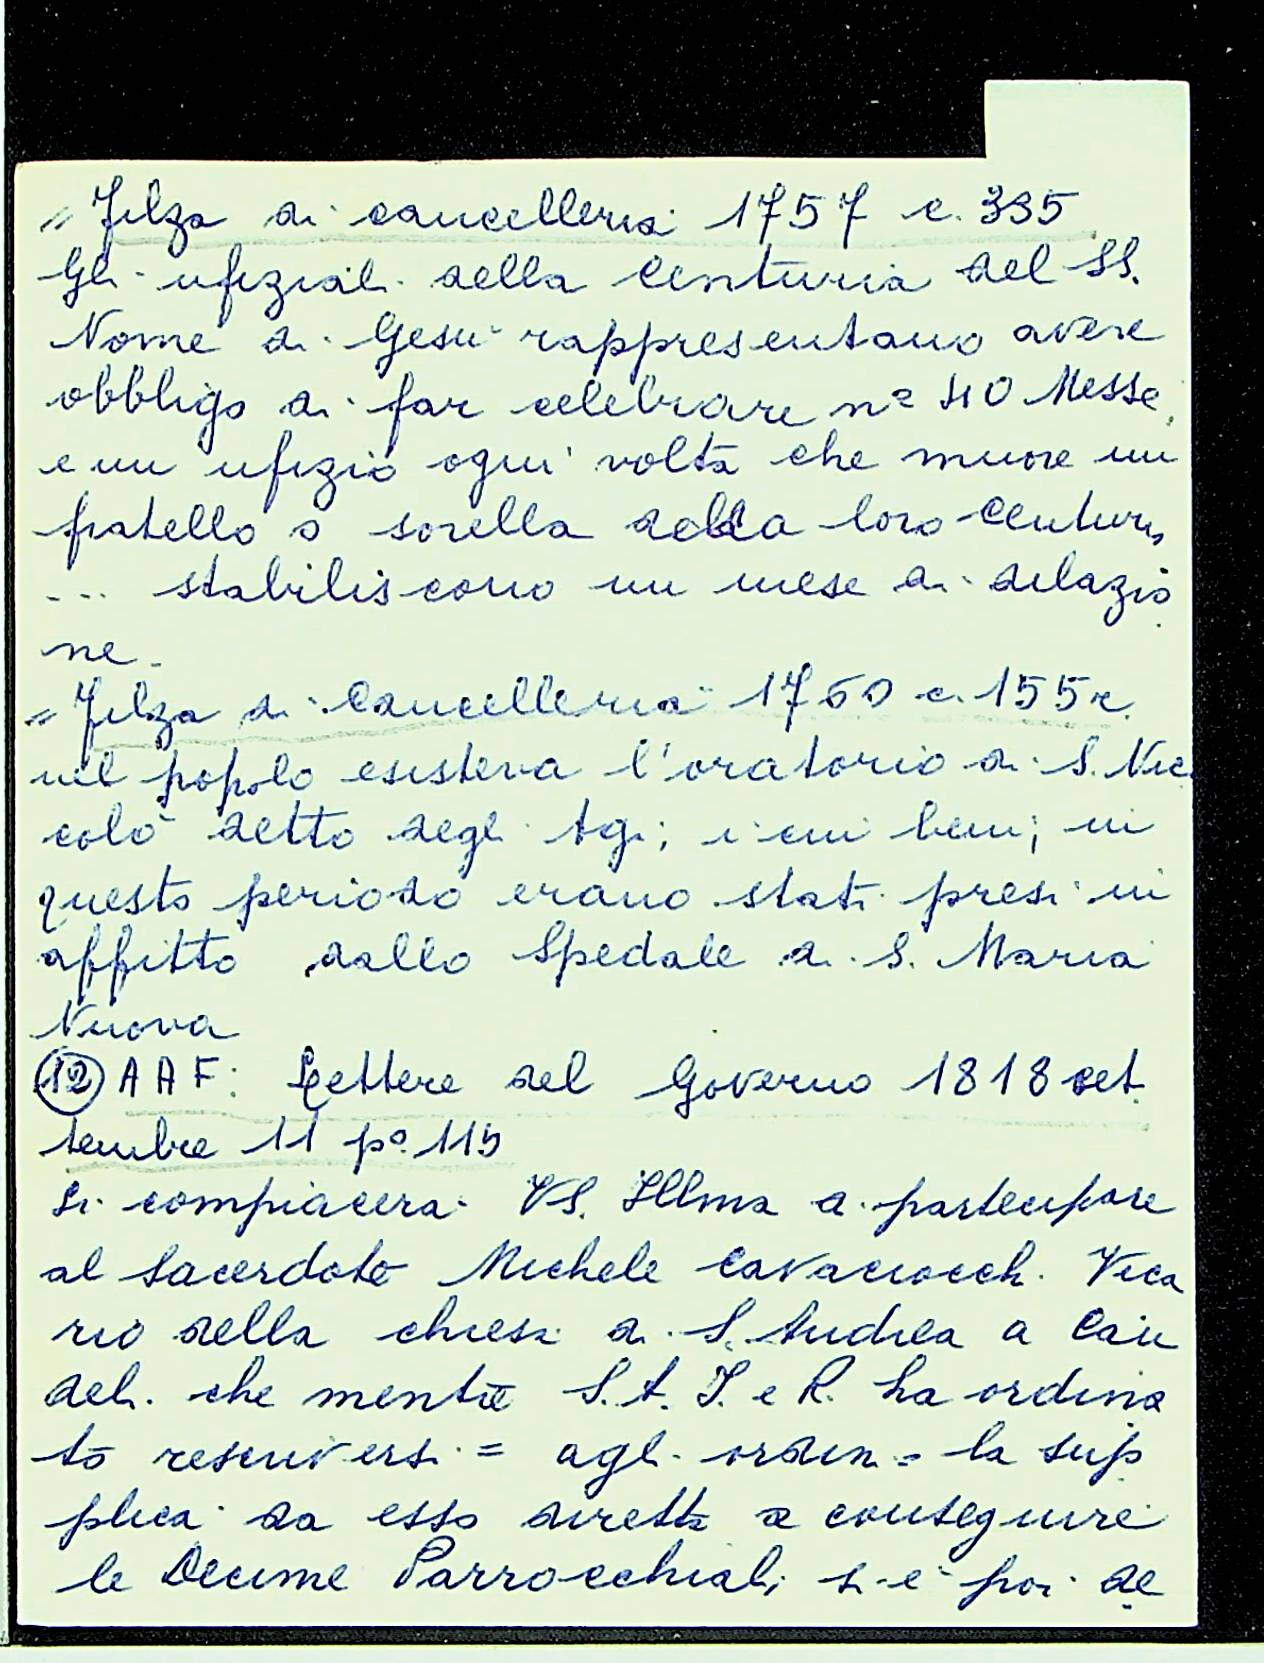 " Filza di cancelleria 1757 c. 335
Gli ufiziali della Centuria del SS.
Nome di Gesù rappresentano avere
obbligo di far celebrare nº 40 Messe
e un ufizio ogni volta che muore un
fratello o sorella della loro Centuri,
... stabiliscono un mese di dilazio
ne.
" Filza di Cancelleria 1760 c. 155r.
nel popolo esisteva l'oratorio di S. Nic
colò detto degli Agi; i cui beni, in
questo periodo erano stati presi in
affitto dallo Spedale di S. Maria
Nuova
(12) AAF: Lettere del Governo 1818 set
tembre 11 pº. 115
Si compiacerà VS. Illma di partecipare
al Sacerdote Michele Cavaciocchi Vica
rio della chiesa di S. Andrea a Can
deli che mentre S. A. I. e R. ha ordina
to rescriversi = agli ordini = la sup
plica da esso diretta a conseguire
le Decime Parrocchiali, si è poi de